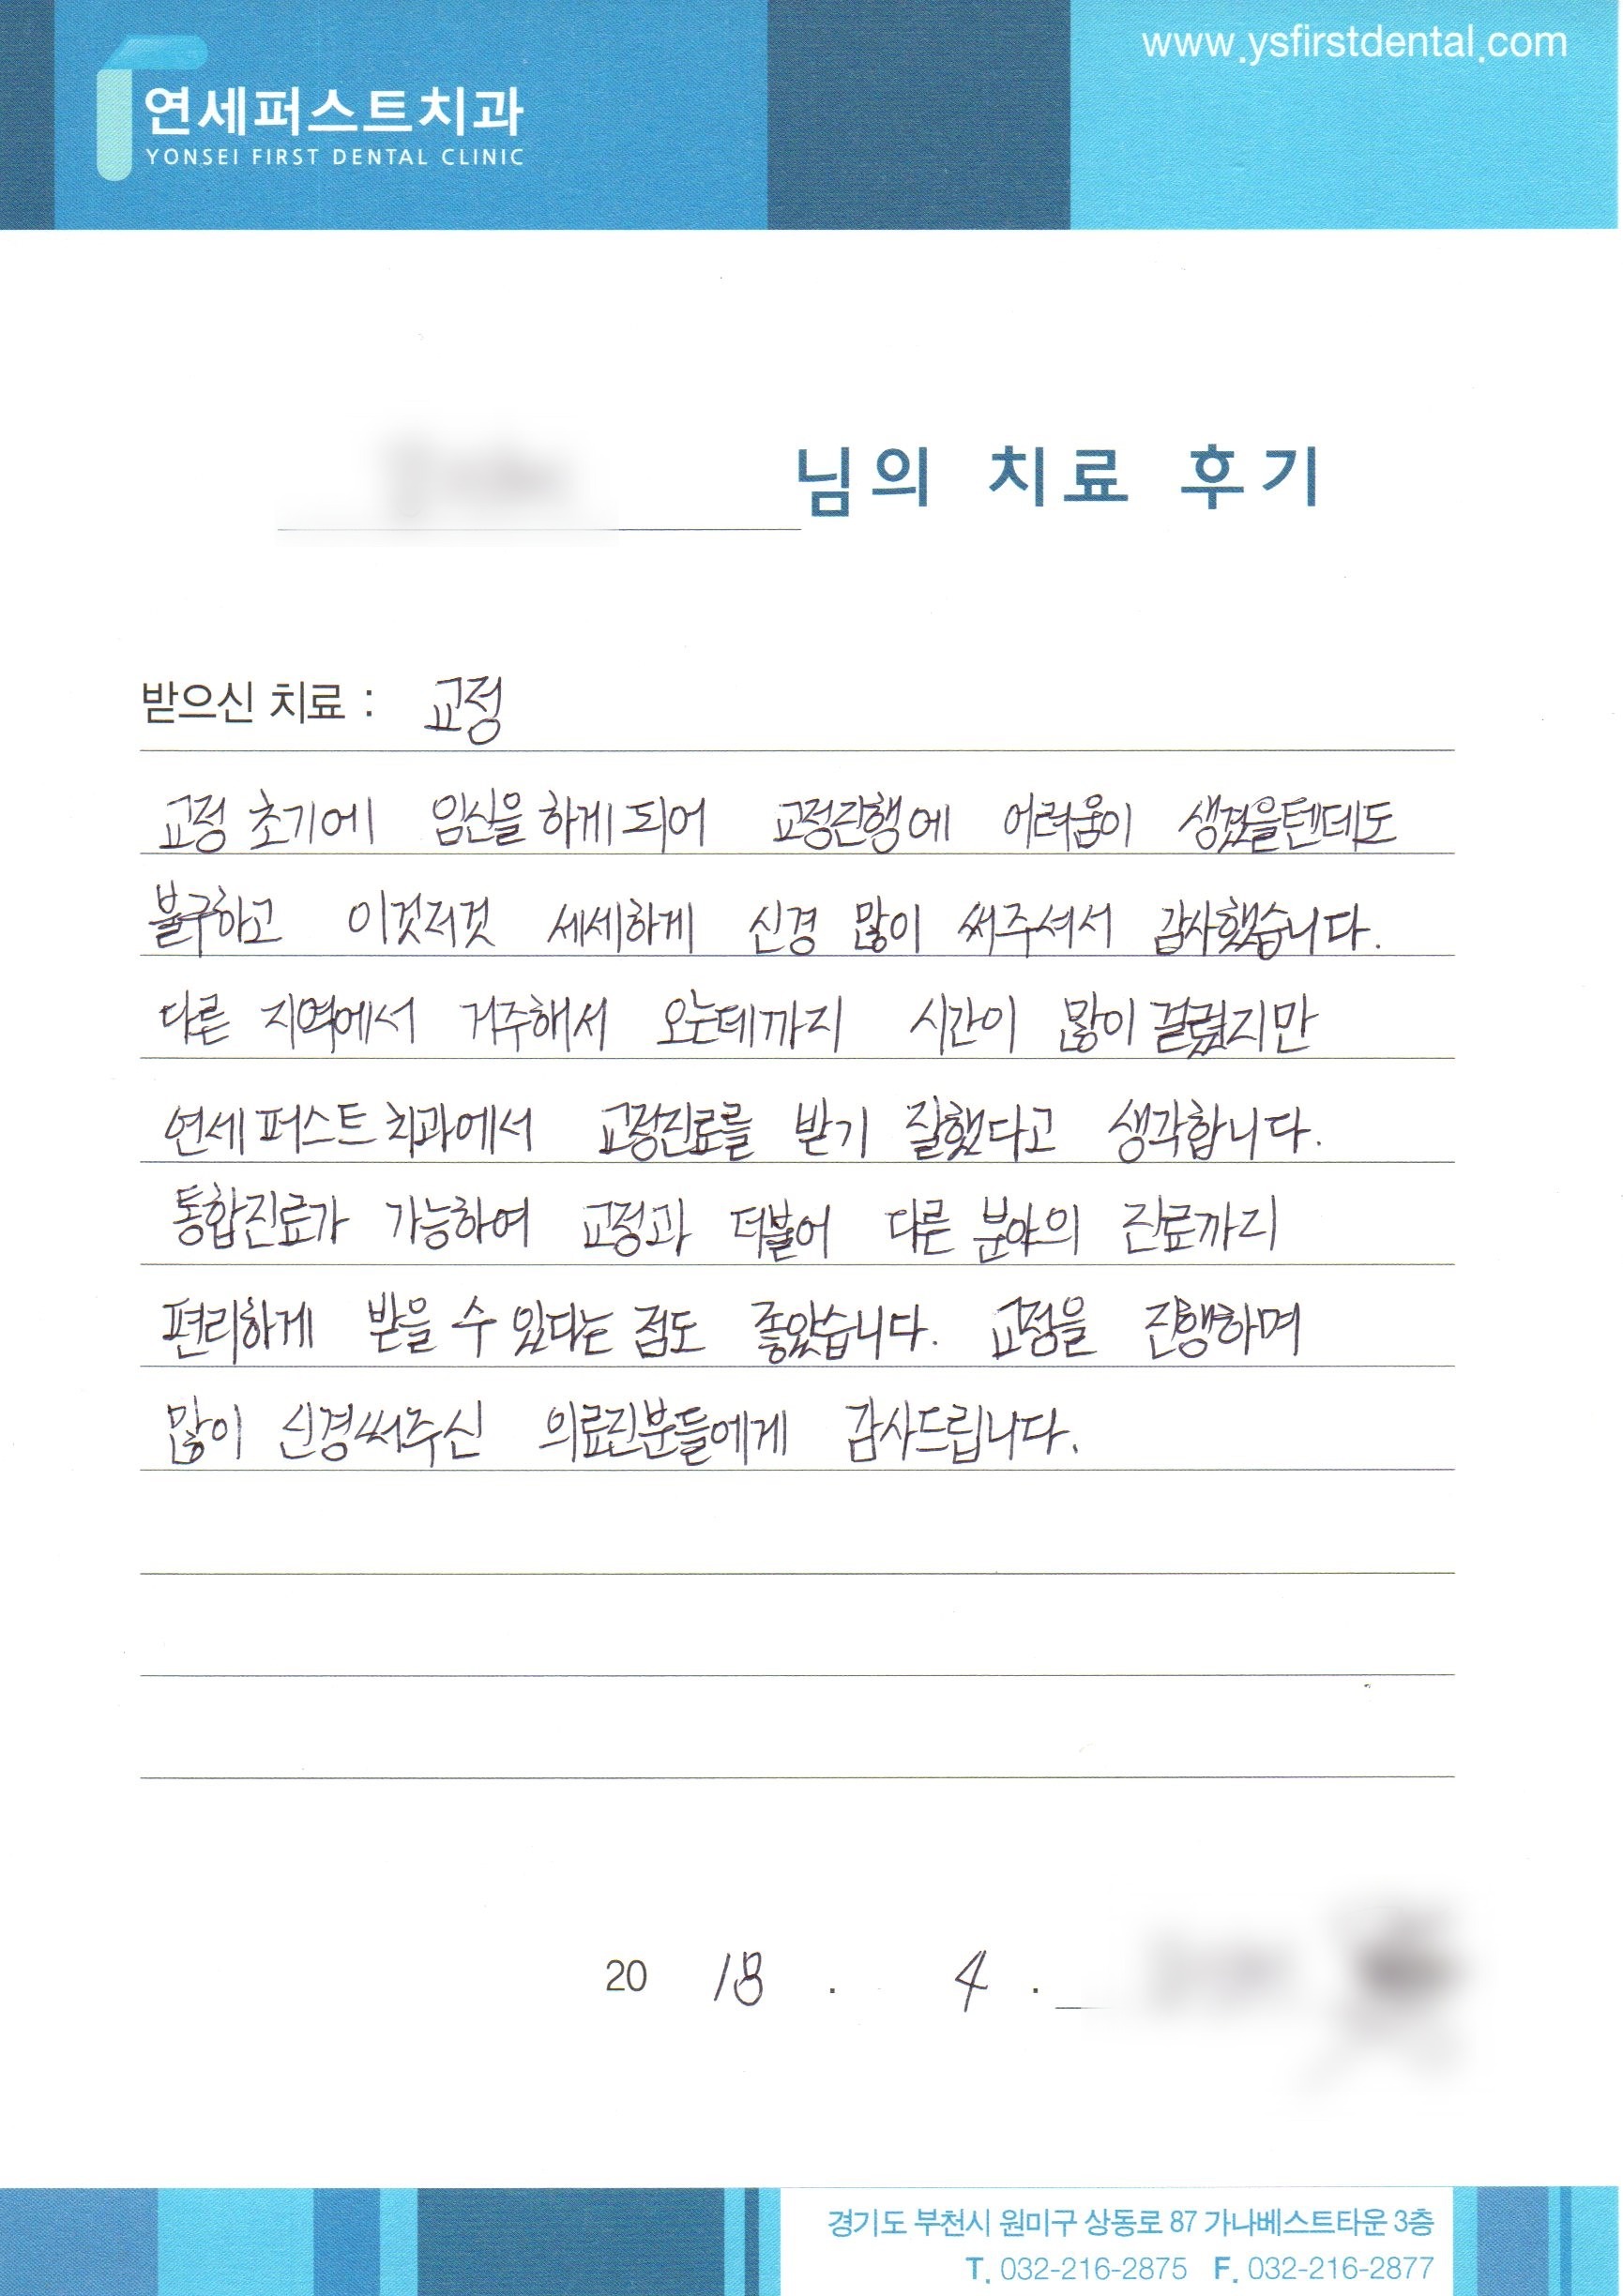 www.ysfirstdental.com
연세퍼스트치과
YONSEI FIRST DENTAL CLINIC
님의 치료 후기
받으신 치료 : 교정
교정 초기에 임신을 하게 되어 교정진행에 어려움이 생겼을텐데도
불구하고 이것저것 세세하게 신경 많이 써주셔서 감사했습니다.
다른 지역에서 거주해서 오는데까지 시간이 많이 걸렸지만
연세퍼스트치과에서 교정진료를 받기 잘했다고 생각합니다.
통합진료가 가능하여 교정과 더불어 다른 분야의 진료까리
편리하게 받을 수 있다는 점도 좋았습니다. 교정을 진행하며
많이 신경써주신 의료진분들에게 감사드립니다.
20 18 . 4 .
경기도 부천시 원미구 상동로 87 가나베스트타운 3층
T. 032-216-2875 F. 032-216-2877